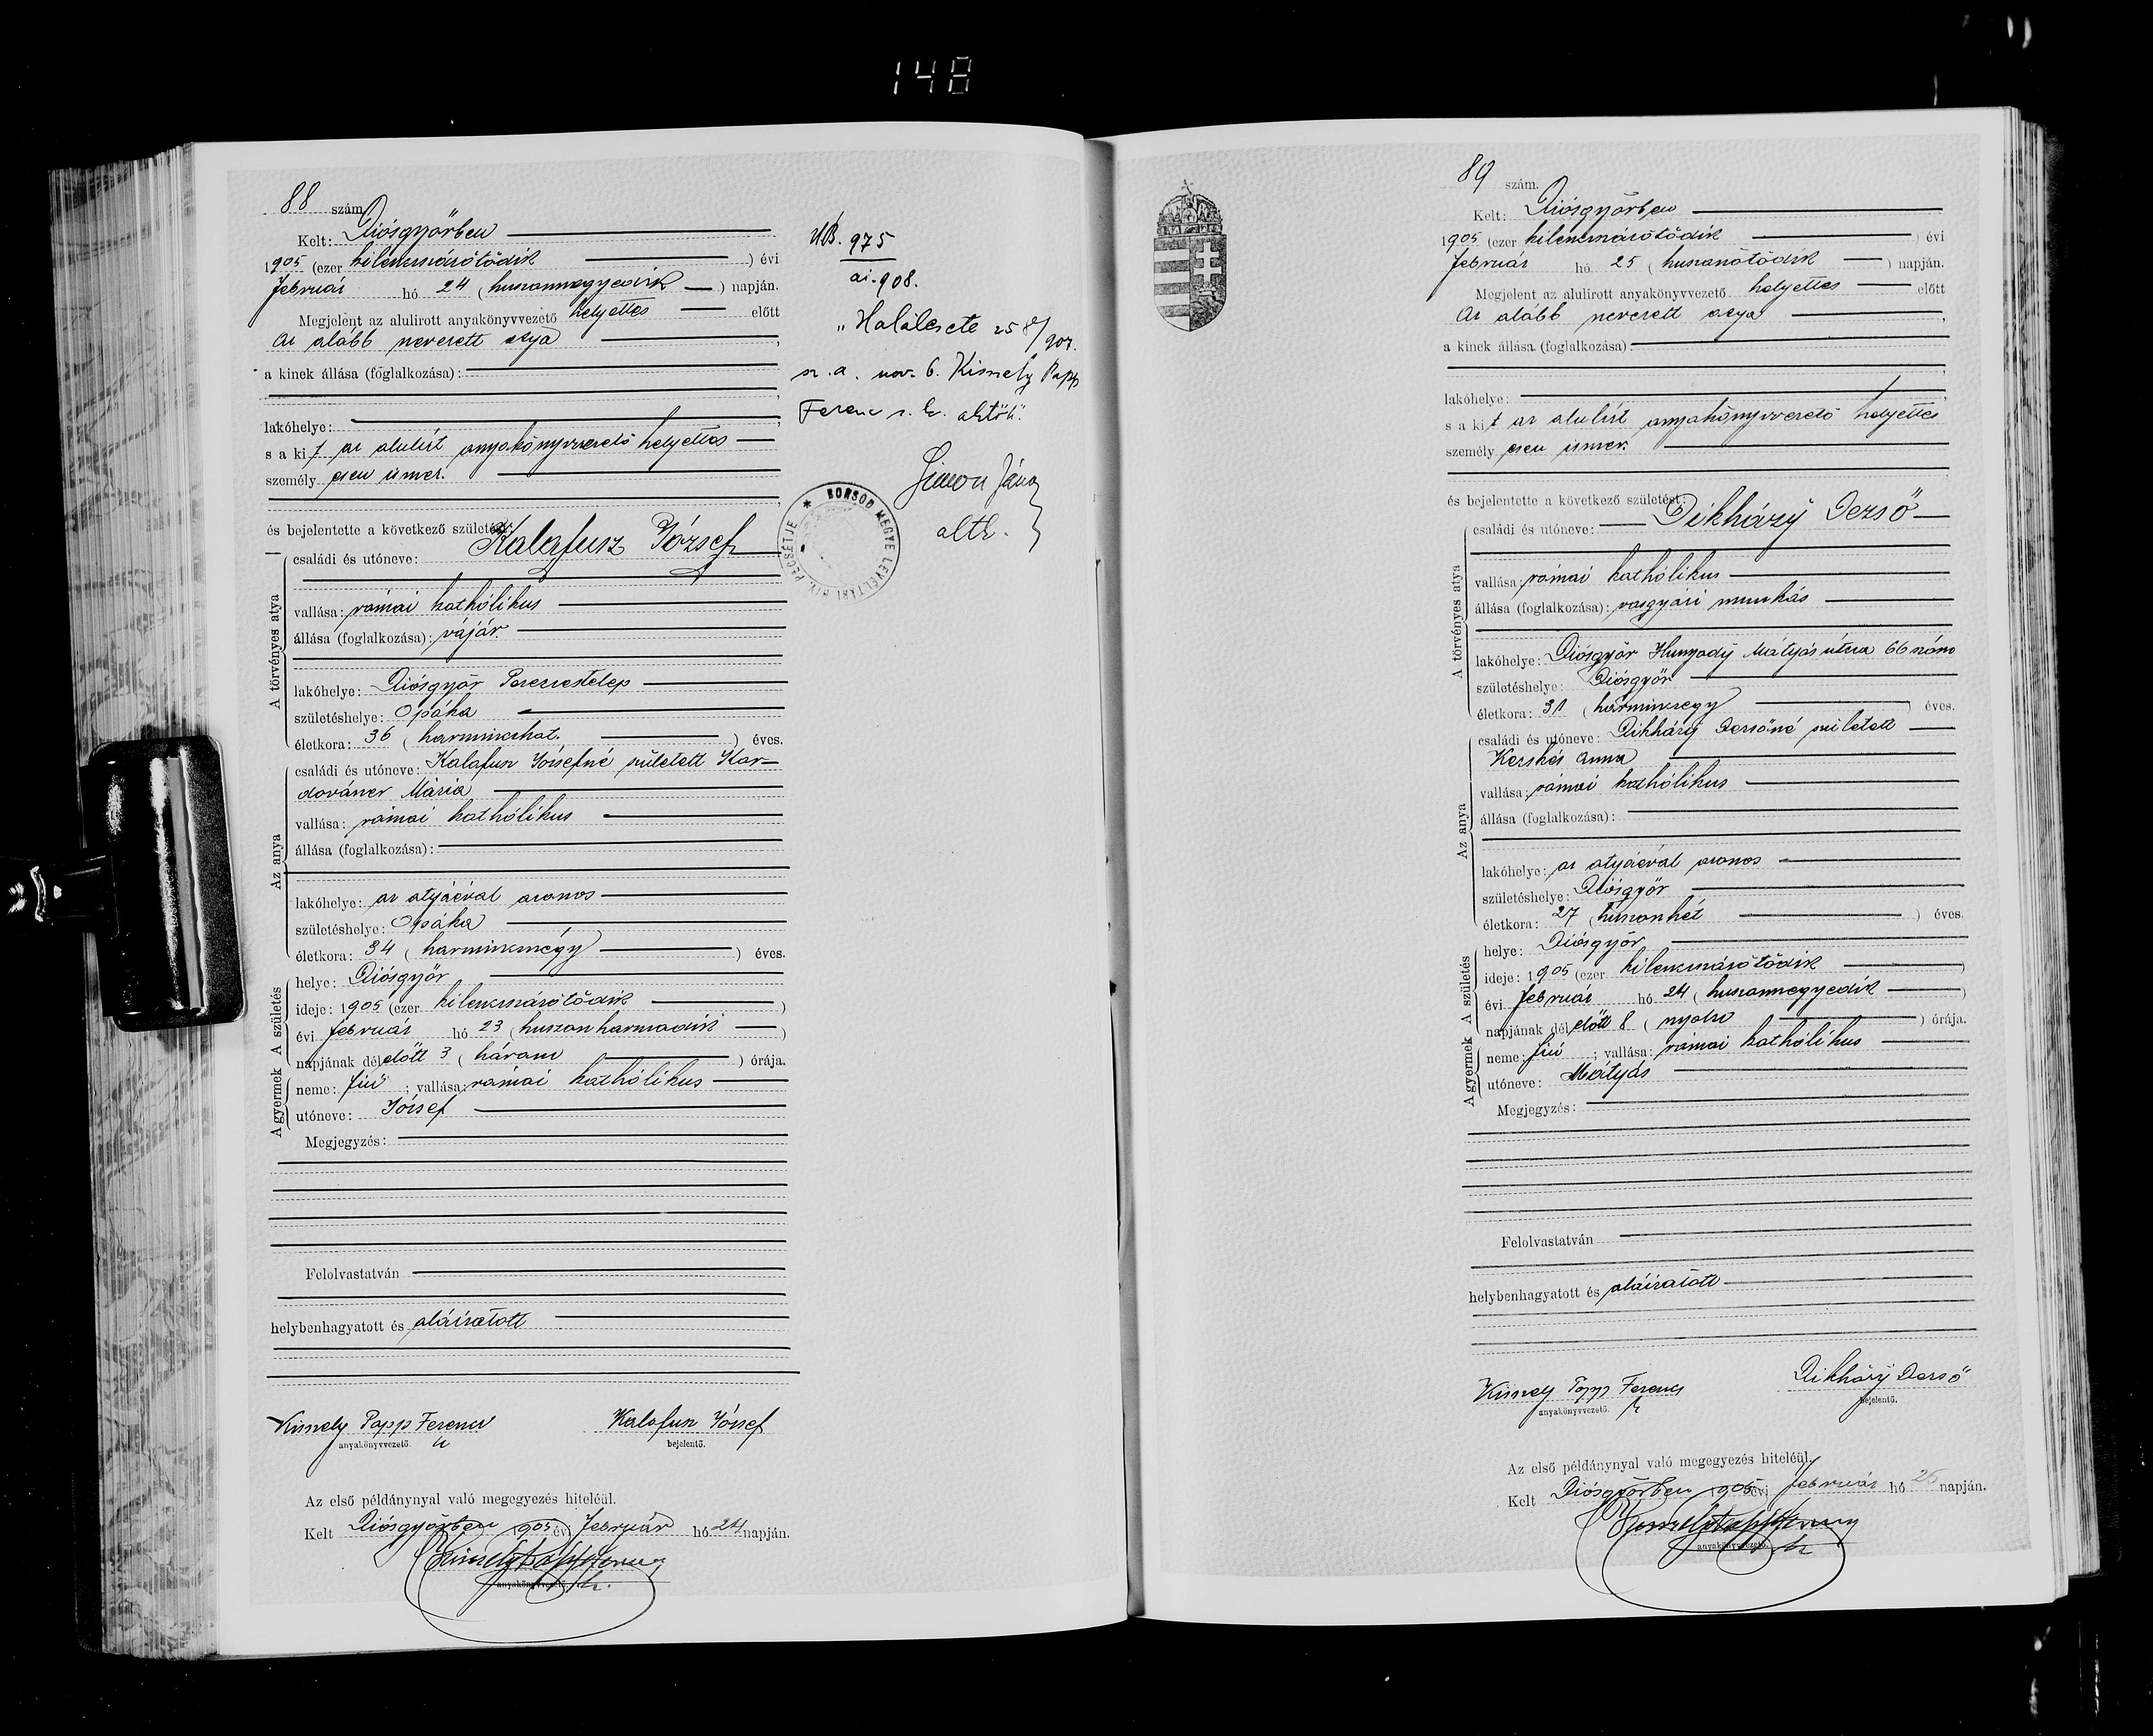 148
88 szám
Kelt: Diósgyőrben
1905 (ezer kilenczszázötödik ) évi
február hó 24 ( huszonnegyedik ) napján.
Megjelent az alulirott anyakönyvvezető helyettes előtt
Az alább nevezett atya ,
a kinek állása (foglalkozása):
lakóhelye:
s a kit az alulírt anyakönyvvezető helyettes
személy esen ismer.
és bejelentette a következő születést:
A törvényes atya
családi és utóneve: Kalafusz József
vallása: római katholikus
állása (foglalkozása): vájár
lakóhelye: Diósgyőr Pereczestelep
születéshelye: Opáka
életkora: 36 ( harminczhat. ) éves.
Az anya
családi és utóneve: Kalafusz Józsefné született Kor-
dováner Mária
vallása: római katholikus
állása (foglalkozása):
lakóhelye: az atyáéval azonos
születéshelye: Opáka
életkora: 34 ( harmincznégy ) éves.
A születés
helye: Diósgyőr
ideje: 1905 (ezer kilenczszázötödik )
évi február hó 23 ( huszonharmadik )
napjának délelőtt 3 ( három ) órája.
A gyermek
neme: fiú ; vallása: római katholikus
utóneve: József
Megjegyzés:
Felolvastatván
helybenhagyatott és aláíratott
Kisszely Papp Ferencz
anyakönyvvezető. h
Kalafusz József
bejelentő.
Az első példánynyal való megegyezés hiteléül.
Kelt Diósgyőrben 1905 évi február hó 24 napján.
anyakönyvvezető. h.
UB. 975
ai. 908.
„Halálesete 258/907.
sz. a. nov. 6. Kisszely Papp
Ferenc s. k. aktőh."
Simon János
altk.
BORSOD MEGYE LEVÉLTÁRI HIV. PECSÉTJE
89 szám.
Kelt: Diósgyőrben
1905 (ezer kilenczszázötödik ) évi
február hó 25 ( huszonötödik ) napján.
Megjelent az alulirott anyakönyvvezető helyettes előtt
Az alább nevezett atya ,
a kinek állása (foglalkozása):
lakóhelye:
s a kit az alulírt anyakönyvvezető helyettes
személy esen ismer.
és bejelentette a következő születést:
A törvényes atya
családi és utóneve: Dikházÿ Dezső
vallása: római katholikus
állása (foglalkozása): vasgyári munkás
lakóhelye: Diósgyőr Hunyady Mátyás útcza 66 szám
születéshelye: Diósgyőr
életkora: 31 ( harminczegy ) éves.
Az anya
családi és utóneve: Dikházÿ Dezsőné született
Kecskés Anna
vallása: római katholikus
állása (foglalkozása):
lakóhelye: az atyáéval azonos
születéshelye: Diósgyőr
életkora: 27 ( huszonhét ) éves.
A születés
helye: Diósgyőr
ideje: 1905 (ezer kilenczszázötödik )
évi február hó 24 ( huszonnegyedik )
napjának délelőtt 8 ( nyolcz ) órája.
A gyermek
neme: fiú ; vallása: római katholikus
utóneve: Mátyás
Megjegyzés:
Felolvastatván
helybenhagyatott és aláíratott
Kisszely Papp Ferencz
anyakönyvvezető. h
Dikházÿ Dezső
bejelentő.
Az első példánynyal való megegyezés hiteléül.
Kelt Diósgyőrben 1905 évi február hó 25 napján.
anyakönyvvezető. h